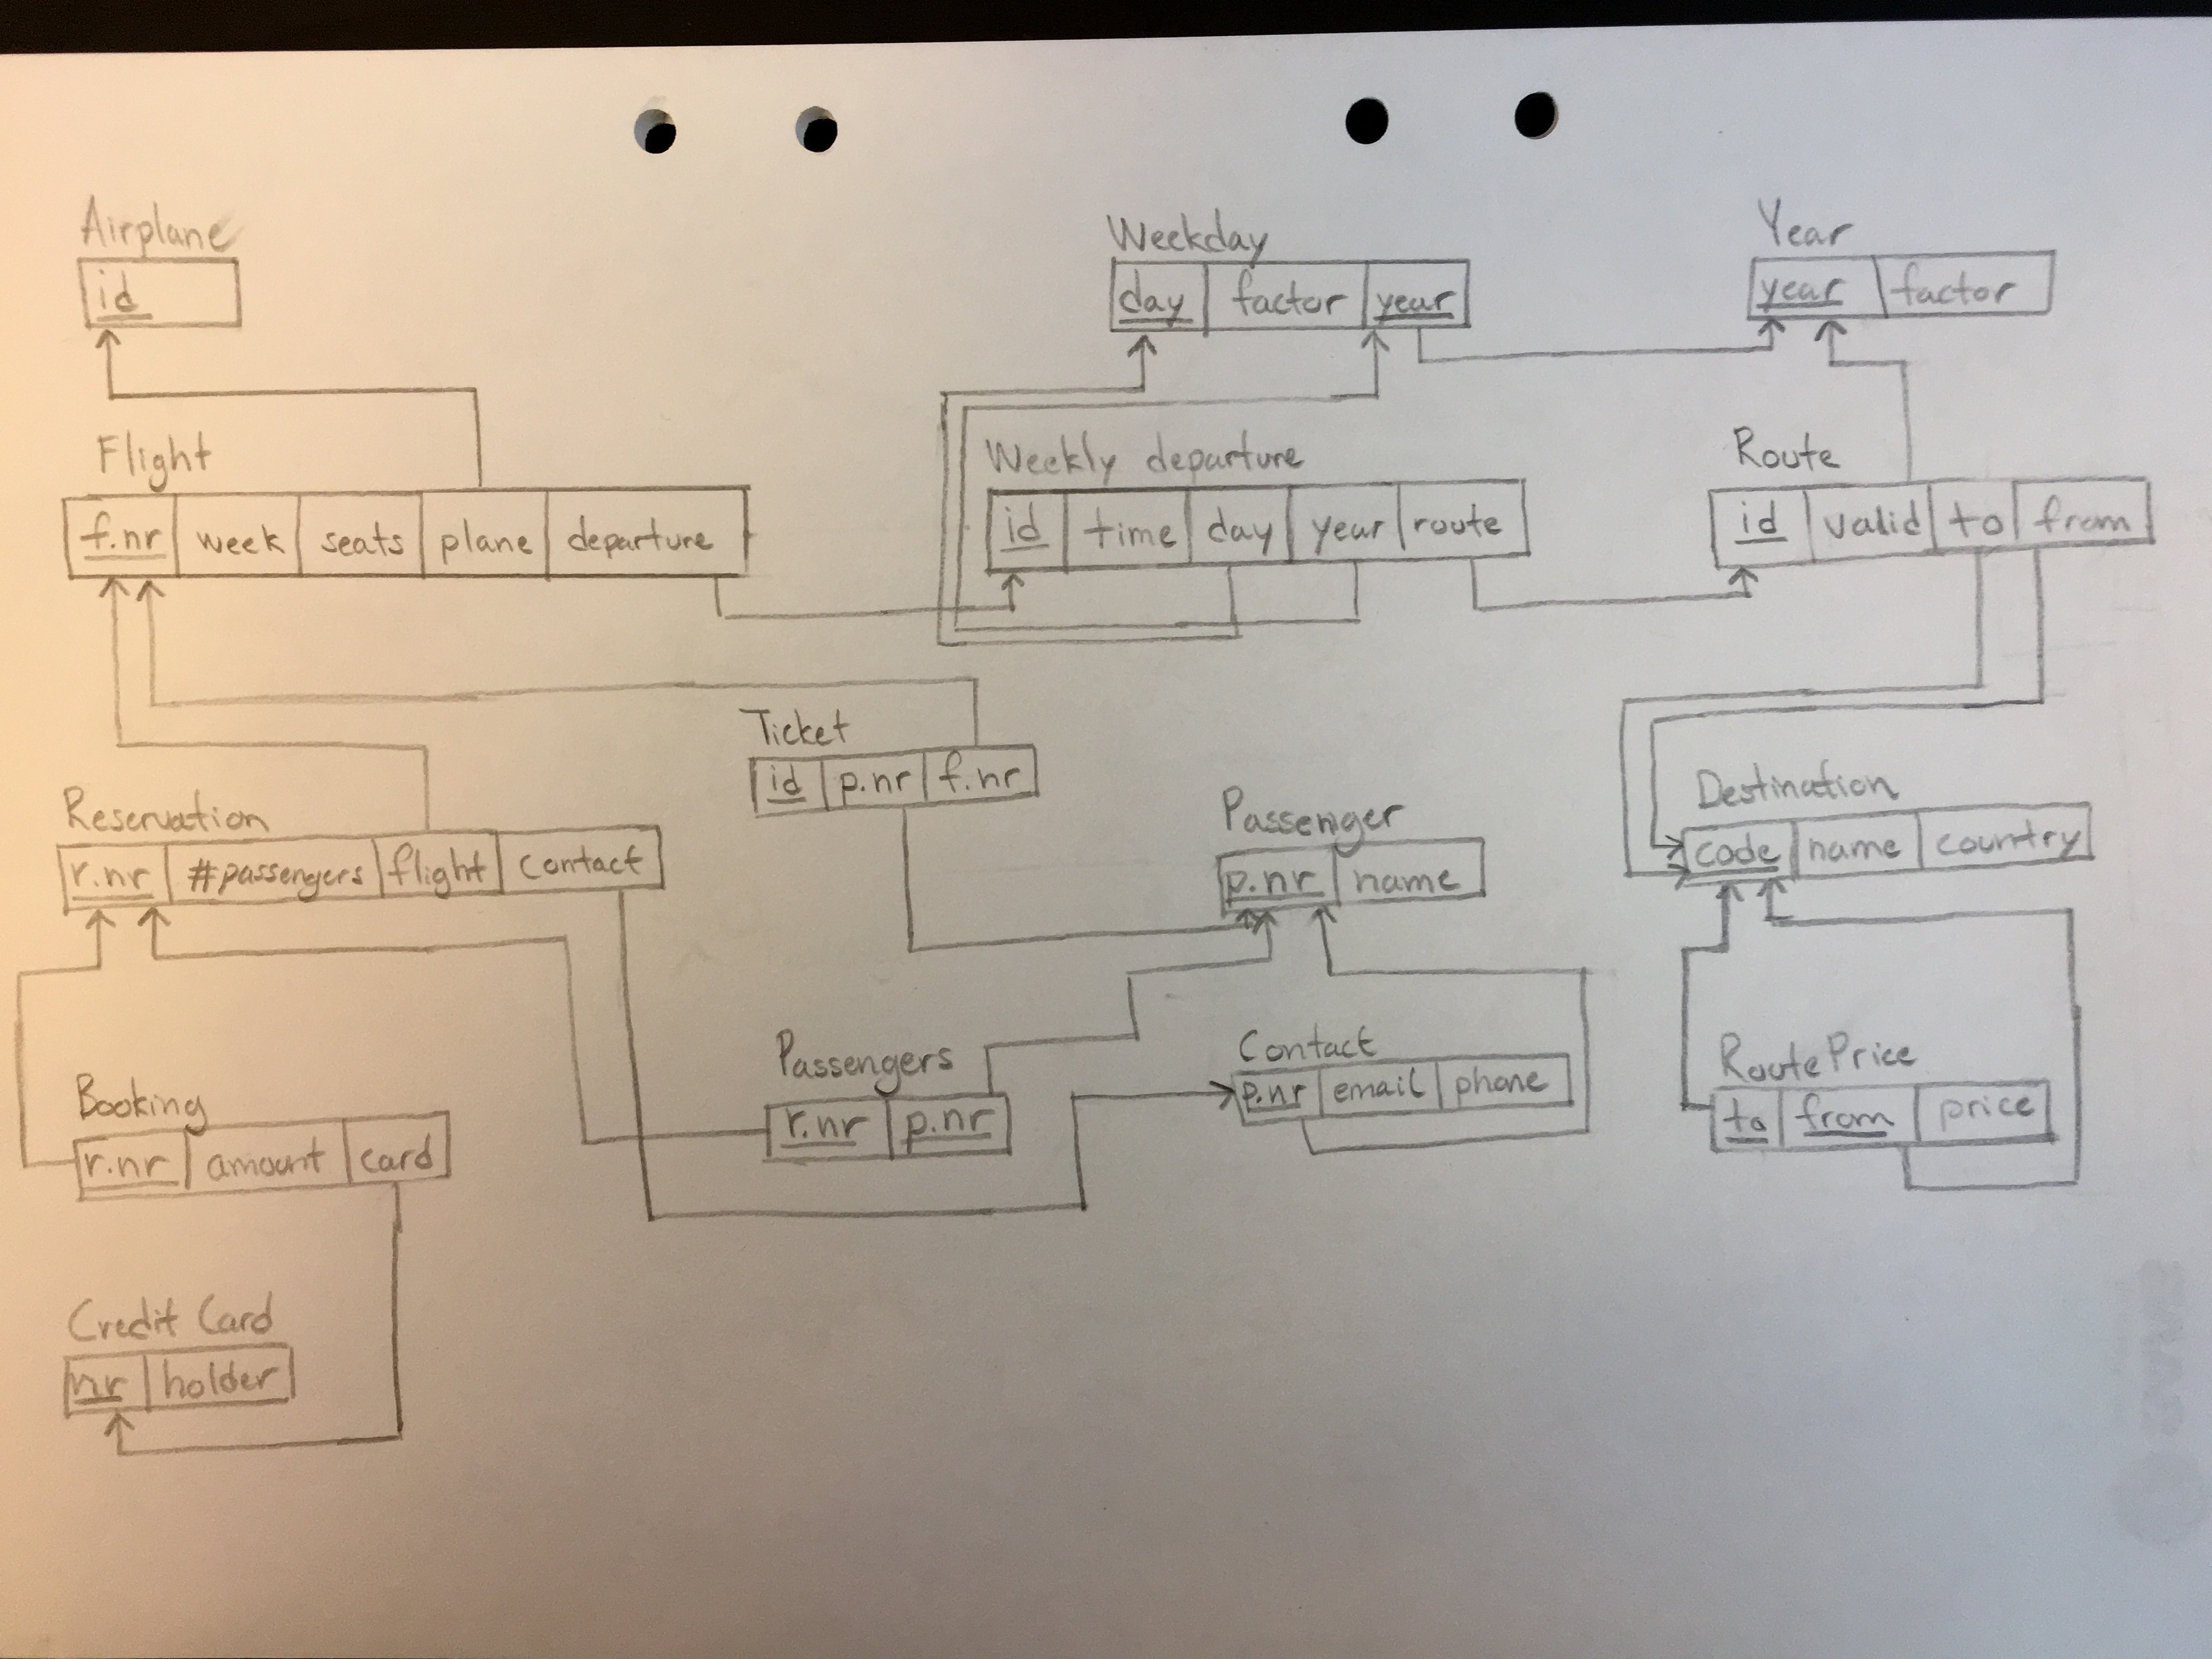 Airplane
id
Weekday
day factor year
Year
year factor
Flight
f.nr week seats plane departure
Weekly departure
id time day year route
Route
id valid to from
Ticket
id p.nr f.nr
Reservation
r.nr #passengers flight contact
Passenger
p.nr name
Destination
code name country
Booking
r.nr amount card
Passengers
r.nr p.nr
Contact
p.nr email phone
Route Price
to from price
Credit Card
nr holder